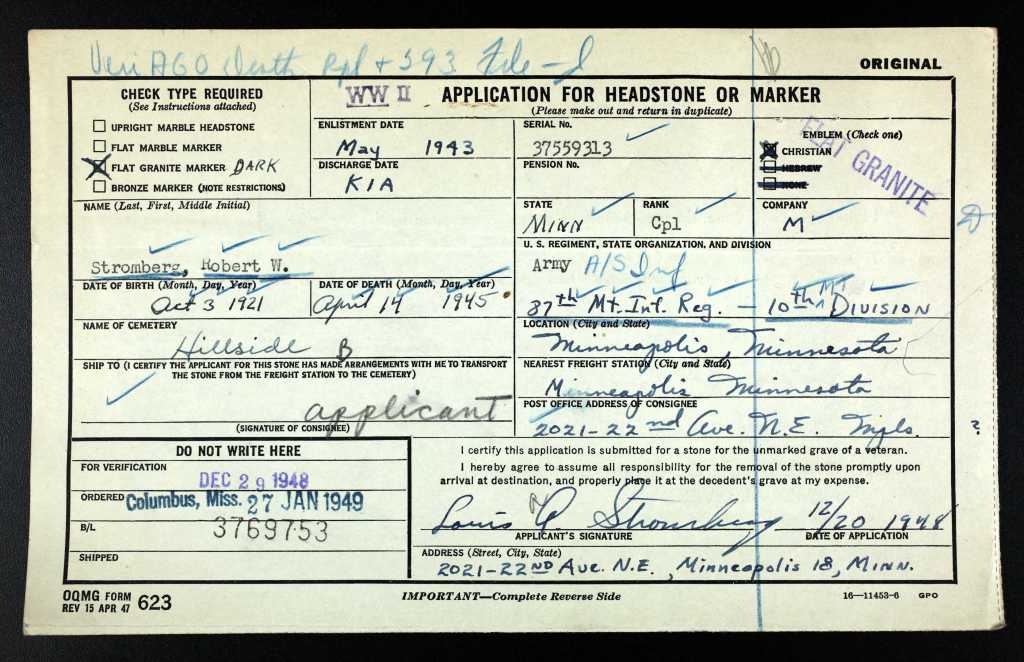 Veri AGO Death Rpt + 293 File
ORIGINAL
CHECK TYPE REQUIRED
(See Instructions attached)
UPRIGHT MARBLE HEADSTONE
FLAT MARBLE MARKER
FLAT GRANITE MARKER DARK
BRONZE MARKER (NOTE RESTRICTIONS)
WW II APPLICATION FOR HEADSTONE OR MARKER
(Please make out and return in duplicate)
ENLISTMENT DATE
May 1943
DISCHARGE DATE
KIA
SERIAL No.
37559313
PENSION No.
EMBLEM (Check one)
CHRISTIAN
HEBREW
NONE
FLAT GRANITE
NAME (Last, First, Middle Initial)
Stromberg, Robert W.
STATE
MINN
RANK
Cpl
COMPANY
M
U. S. REGIMENT, STATE ORGANIZATION, AND DIVISION
Army A/S Inf
87th Mt. Inf. Reg. - 10th Mt DIVISION
DATE OF BIRTH (Month, Day, Year)
Oct 3 1921
DATE OF DEATH (Month, Day, Year)
April 14 1945
NAME OF CEMETERY
Hillside B
LOCATION (City and State)
Minneapolis, Minnesota
SHIP TO (I CERTIFY THE APPLICANT FOR THIS STONE HAS MADE ARRANGEMENTS WITH ME TO TRANSPORT
THE STONE FROM THE FREIGHT STATION TO THE CEMETERY)
applicant
(SIGNATURE OF CONSIGNEE)
NEAREST FREIGHT STATION (City and State)
Minneapolis Minnesota
POST OFFICE ADDRESS OF CONSIGNEE
2021-22nd Ave. N.E. Mpls. ?
DO NOT WRITE HERE
FOR VERIFICATION
DEC 29 1948
ORDERED Columbus, Miss. 27 JAN 1949
B/L
3769753
SHIPPED
I certify this application is submitted for a stone for the unmarked grave of a veteran.
I hereby agree to assume all responsibility for the removal of the stone promptly upon
arrival at destination, and properly place it at the decedent's grave at my expense.
Louis P. Stromberg 12/20 1948
APPLICANT'S SIGNATURE
DATE OF APPLICATION
ADDRESS (Street, City, State)
2021-22ND Ave. N.E., Minneapolis 18, MINN.
OQMG FORM
REV 15 APR 47 623
IMPORTANT—Complete Reverse Side
16—11453-6 GPO